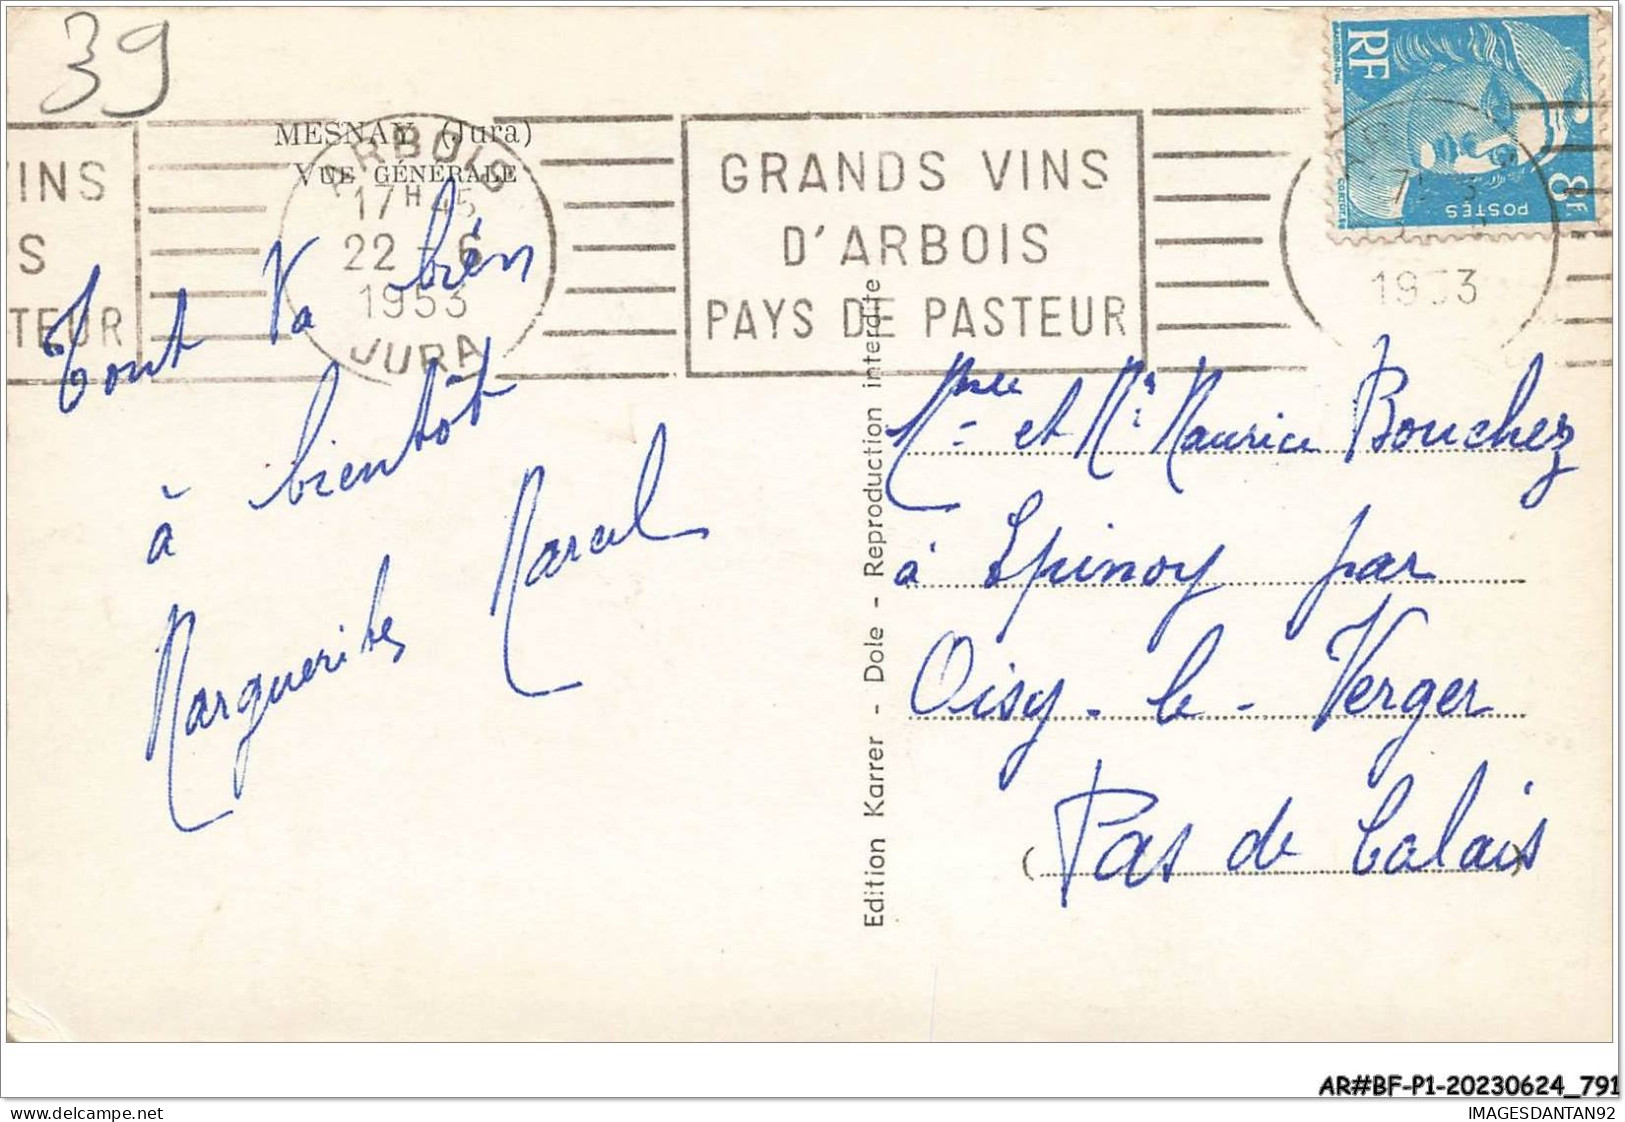 39
MESNAY (Jura)
VUE GÉNÉRALE
ARBOIS
17H45
22 - 6
1953
JURA
VINS
S
TEUR
GRANDS VINS
D'ARBOIS
PAYS DE PASTEUR
RF
8F
POSTES
1953
Tout va bien
à bientôt
Marguerites Marcel
Edition Karrer - Dole - Reproduction interdite
Mme et Mr Maurice Bouchez
à Epinoy par
Oisy-le-Verger
(Pas de Calais)
AR#BF-P1-20230624_791
delcampe.net
IMAGESDANTAN92